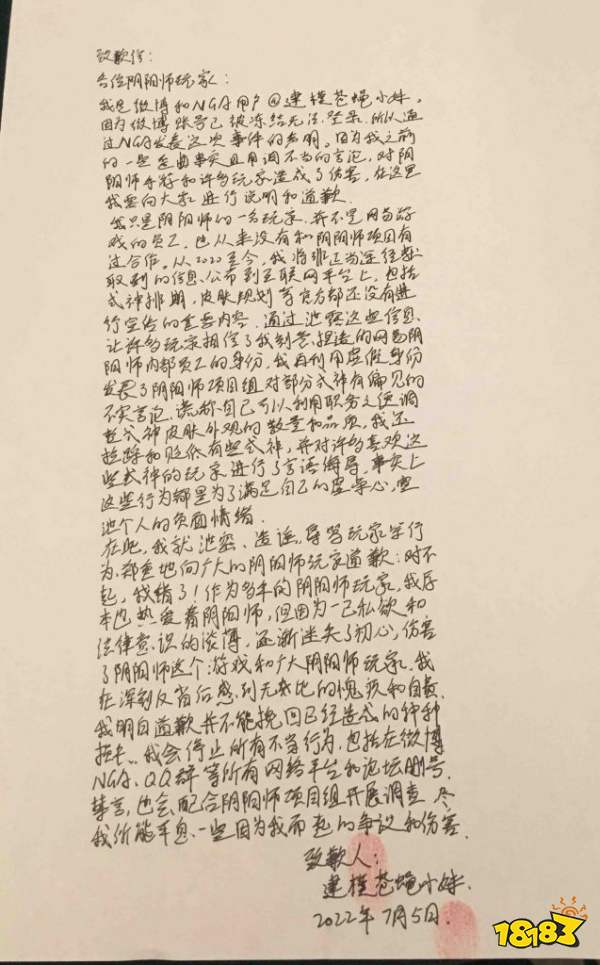 致歉信：
各位阴阳师玩家：
我是微博和NGA用户@建模苍蝇小妹，
因为微博账号已被冻结无法登录，所以通
过NGA发表这次事件的声明。因为我之前
的一些歪曲事实且用词不当的言论，对阴
阳师手游和许多玩家造成了伤害，在这里
我要向大家进行说明和道歉。
我只是阴阳师的一名玩家，并不是网易游
戏的员工，也从来没有和阴阳师项目有
过合作。从2020至今，我将非正当途径获
取到的信息，公布到互联网平台上，包括
式神排期，皮肤规划等官方都还没有进
行宣传的重要内容。通过泄露这些信息，
让许多玩家相信了我刻意捏造的网易阴
阳师内部员工的身份，我再利用虚假身份
发表了阴阳师项目组对部分式神有偏见的
不实言论，谎称自己可以利用职务之便调
整式神皮肤外观的数量和品质，我还
拉踩和贬低有些式神，并对许多喜欢这
些式神的玩家进行了言语侮辱，事实上
这些行为都是为了满足自己的虚荣心，宣
泄个人的负面情绪。
在此，我就泄密、造谣、辱骂玩家等行
为，郑重地向广大的阴阳师玩家道歉：对不
起，我错了！作为多年的阴阳师玩家，我原
本也热爱着阴阳师，但因为一己私欲和
法律意识的淡薄，逐渐迷失了初心，伤害
了阴阳师这个游戏和广大阴阳师玩家。我
在深刻反省后感到无比的愧疚和自责。
我明白道歉并不能挽回已经造成的种种
损失，我会停止所有不当行为，包括在微博
NGA、QQ群等所有网络平台和论坛删号、
禁言，也会配合阴阳师项目组开展调查，尽
我所能平息一些因为我而起的争议和伤害。
致歉人：
建模苍蝇小妹.
2022年7月5日.
18183